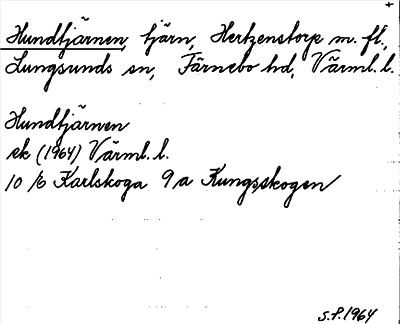 Hundtjärnen, tjärn, Hertzenstorp m. fl.,
Lungsunds sn, Färnebo hd, Värml. l.
Hundtjärnen
ek (1964) Värml. l.
10 /6 Karlskoga 9 a Kungsskogen
S.P. 1964